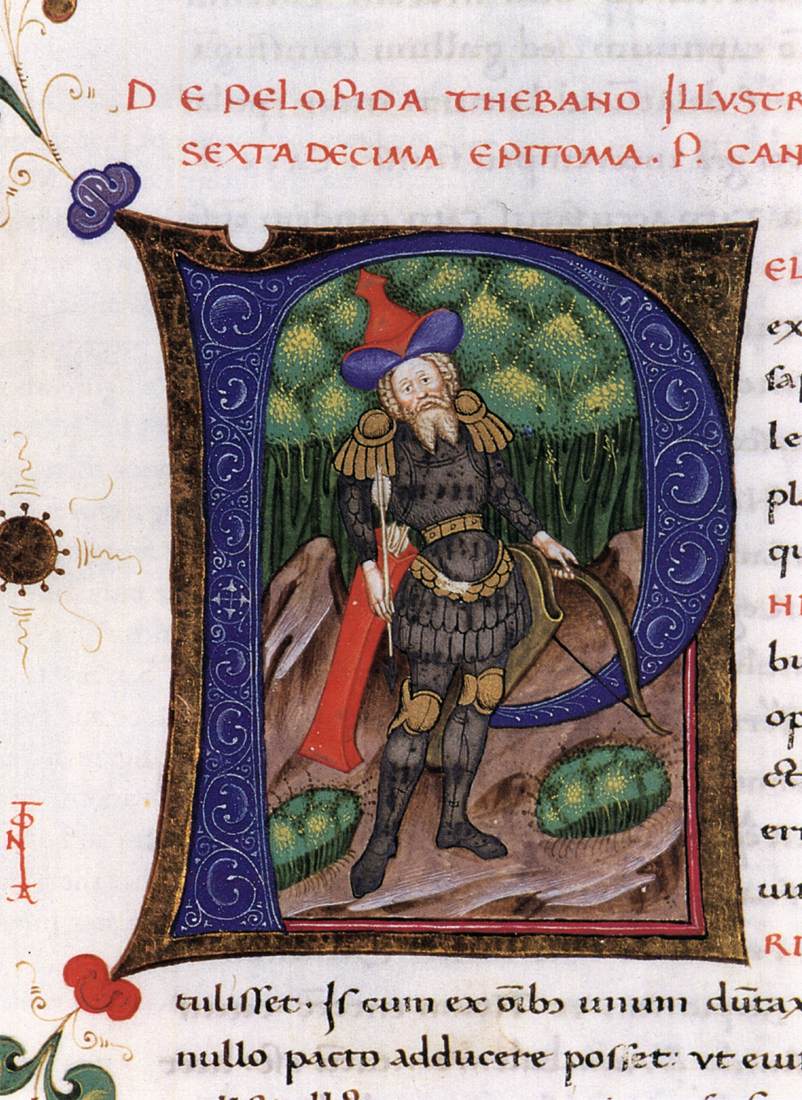 DE PELOPIDA THEBANO ILLVSTR
SEXTADECIMA EPITOMA. P. CAN
P
EL
ex
sap
le
pl
qu
HI
bu
op
ct
err
uu
RI
tulisset. Is cum ex oībꝯ unum dūtax
nullo pacto adducere posset: vt eiu